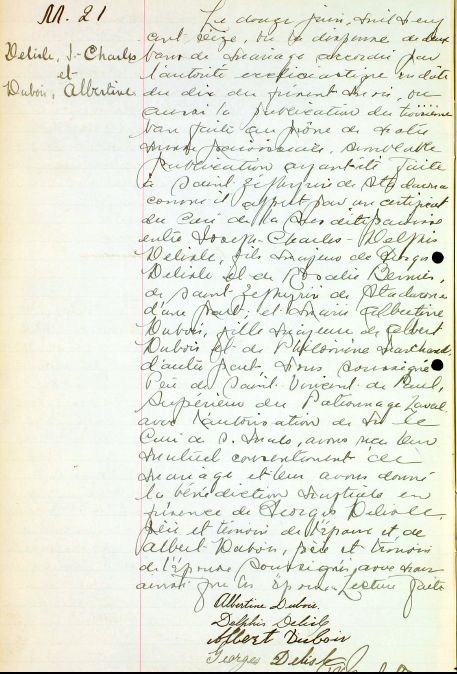 M. 21
Delisle, J.-Charles
et
Dubois, Albertine
Le douze juin, mil neuf
cent seize, vu la dispense de deux
bans de mariage accordée par
l'autorité ecclésiastique en date
du dix du présent mois, vu
aussi la publication du troisième
ban faite au prône de notre
messe paroissiale, semblable
publication ayant été faite
à Saint Zéphyrin de Stadacona
comme il appert par un certificat
du Curé de la susdite paroisse
entre Joseph-Charles-Delphis
Delisle, fils majeur de Georges
Delisle et de Rosalie Bernier,
de Saint Zéphyrin de Stadacona
d'une part; et Marie Albertine
Dubois, fille majeure de Albert
Dubois et de Philomène Marchand,
d'autre part, Nous soussigné
Père de Saint Vincent de Paul,
Supérieur du Patronage Laval
avec l'autorisation de Mr le
Curé de S. Malo, avons reçu leur
mutuel consentement de
mariage et leur avons donné
la bénédiction nuptiale en
présence de Georges Delisle,
père et témoin de l'époux et de
Albert Dubois, père et témoin
de l'épouse soussignés avec nous
ainsi que les époux. Lecture faite
Albertine Dubois.
Delphis Delisle
Albert Dubois
Georges Delisle